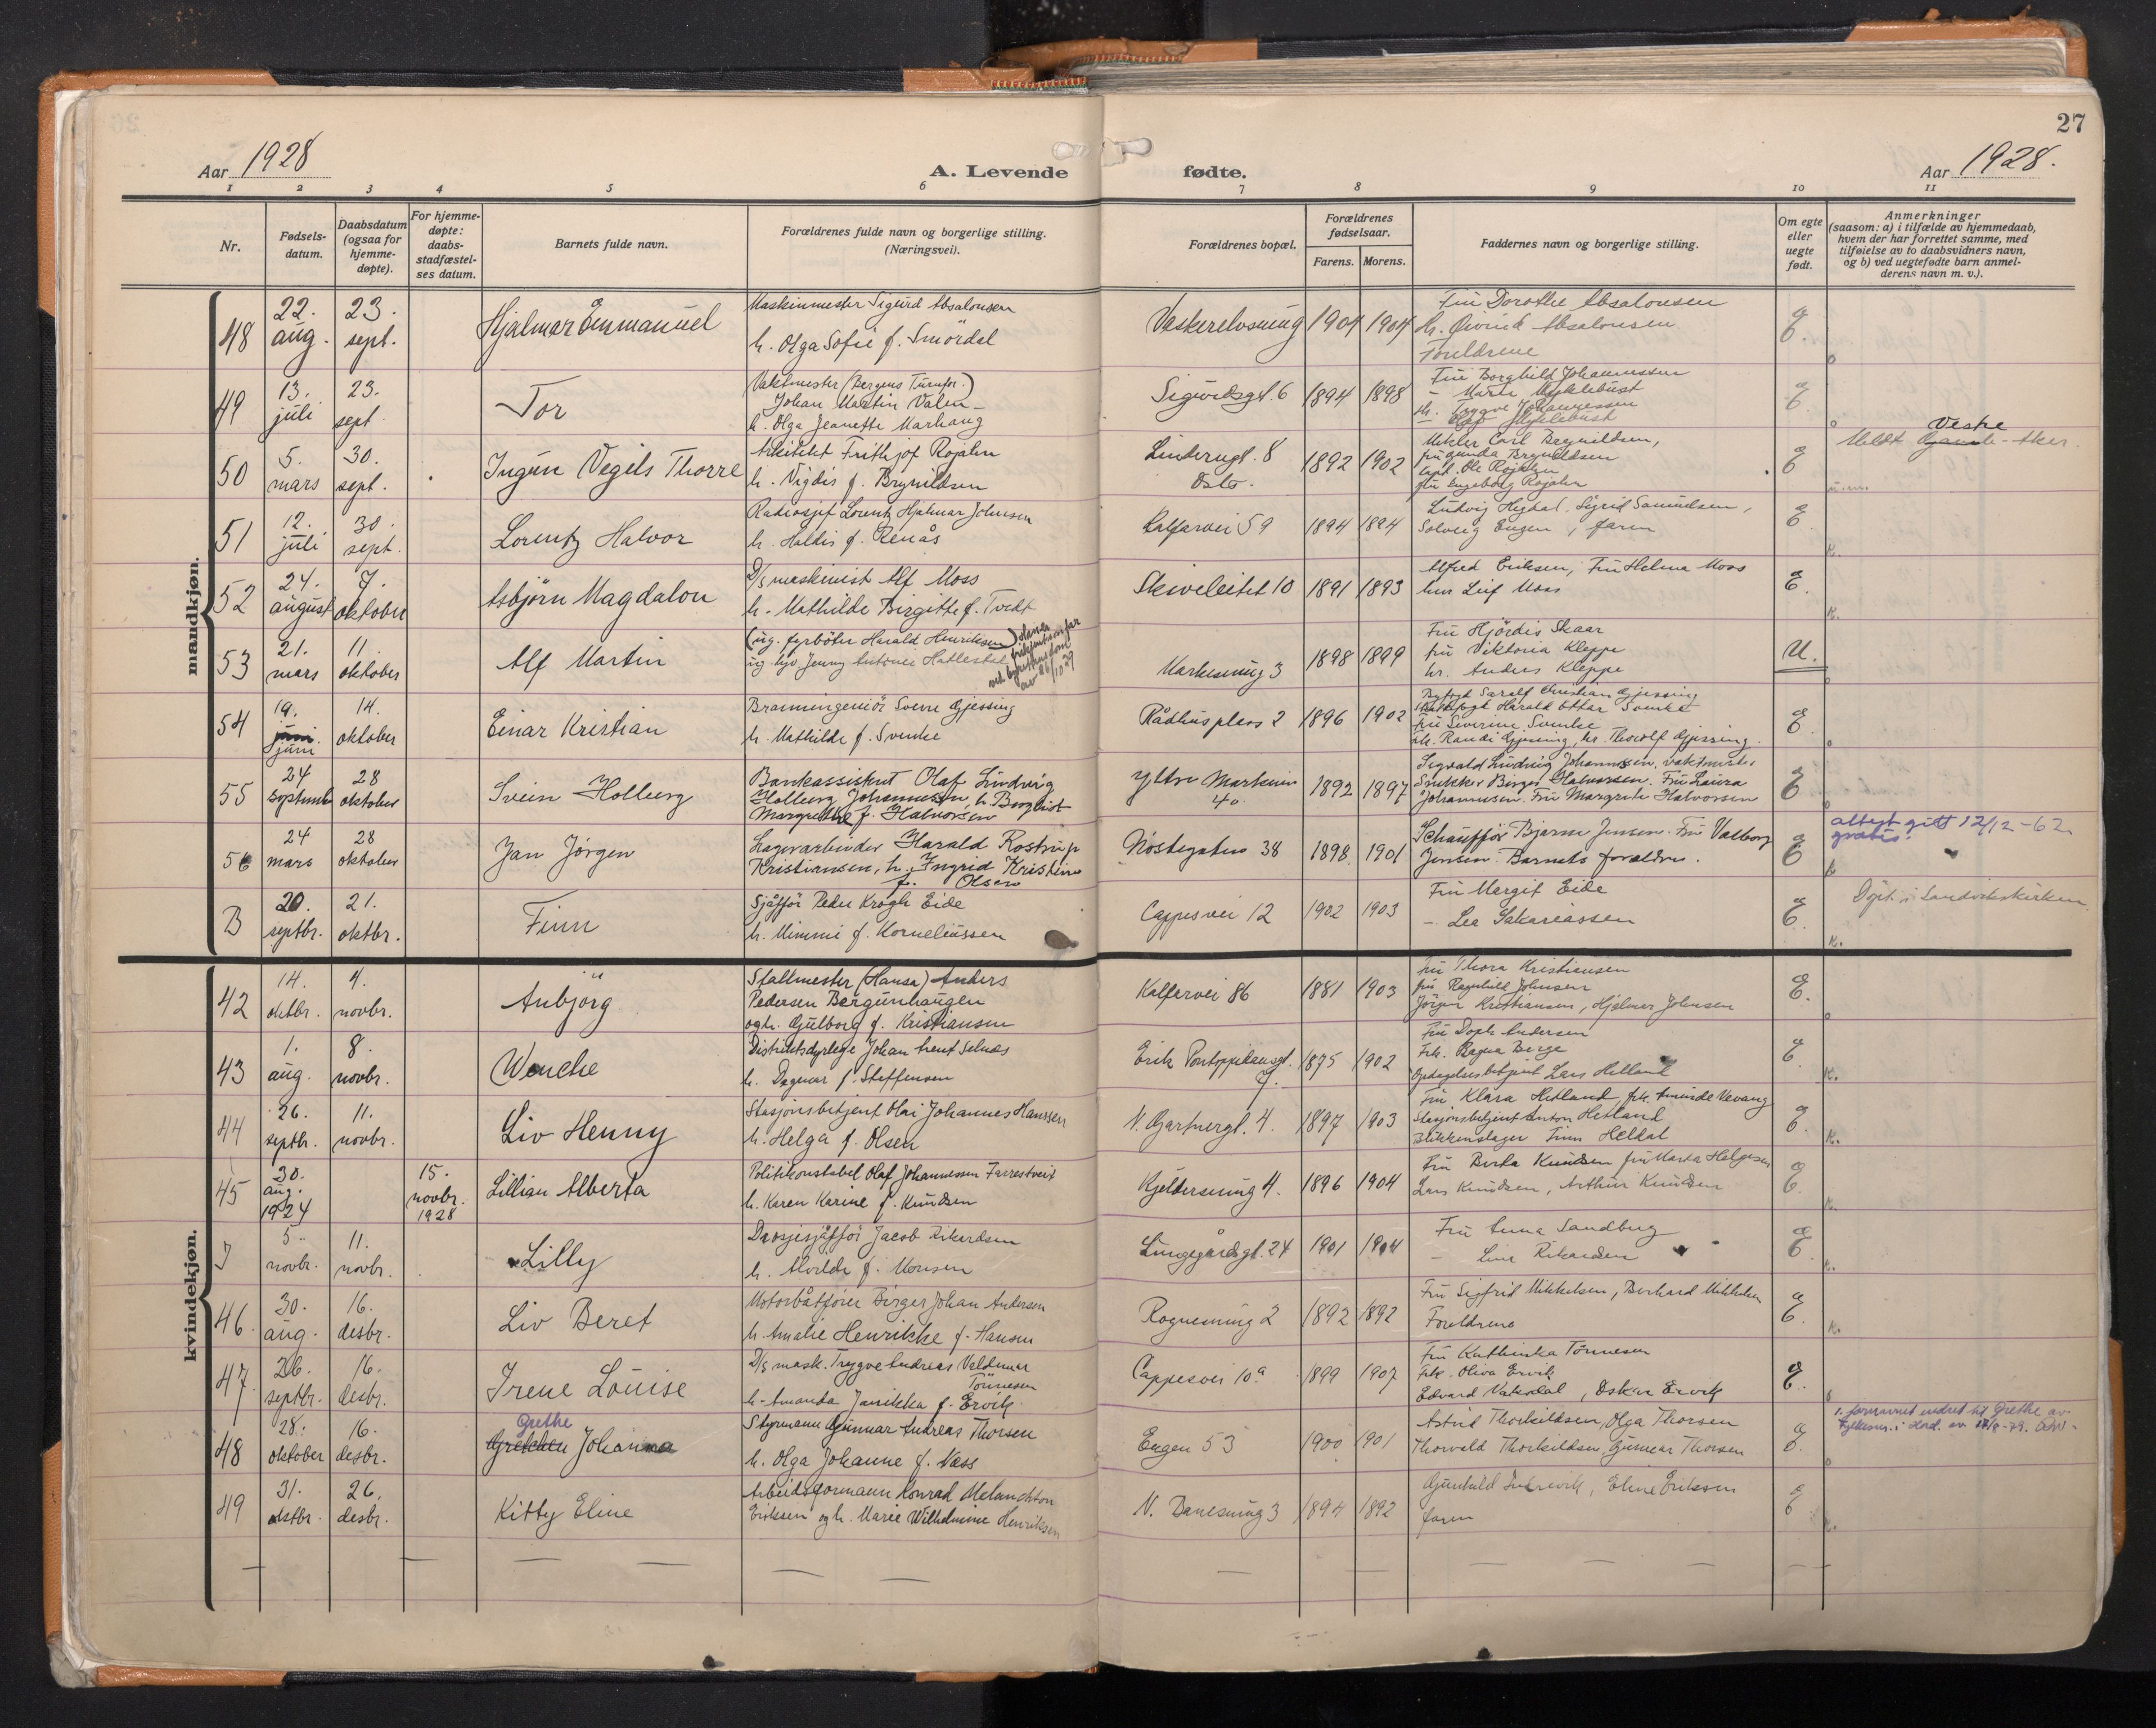 27
Aar 1928
A. Levende fødte.
Aar 1928.
1 2 3 4 5 6 7 8 9 10 11
Nr.
Fødsels-
datum.
Daabsdatum
(ogsaa for
hjemme-
døpte).
For hjemme-
døpte:
daabs-
stadfæstel-
ses datum.
Barnets fulde navn.
Forældrenes fulde navn og borgerlige stilling.
(Næringsvei).
Forældrenes bopæl.
Forældrenes
fødselsaar.
Farens. Morens.
Faddernes navn og borgerlige stilling.
Om egte
eller
uegte
født.
Anmerkninger
(saasom: a) i tilfælde av hjemmedaab,
hvem der har forrettet samme, med
tilføielse av to daabsvidners navn,
og b) ved uegtefødte barn anmel-
derens navn m. v.).
mandkjøn.
48
22.
aug.
23.
sept.
Hjalmar Emmanuel
Maskinmester Sigurd Absalonsen
h. Olga Sofie f. Smördal
Vaskerelvsmug
1904 1904
Fru Dorothe Absalonsen
Hr. Øivind Absalonsen
Foreldrene
E.
49
13.
juli
23.
sept
Tor
Vaktmester (Bergens Turnfor.)
Johan Martin Valen
h. Olga Jeanette Marhaug
Sigurdsgt. 6
1894 1898
Fru Borghild Johannessen
- Marta Myklebust
hr. Trygve Johannessen
Myklebust
E.
50
5.
mars
30.
sept.
Ingun Vegils Thorre
Arkitekt Frithjof Rojahn
h. Vigdis f. Brynildsen
Linderngt. 8
Oslo.
1892 1902
Mekler Carl Brynildsen,
fru Gunda Brynildsen
Capt. Ole Rojahn
fru Ingeborg Rojahn
E
Meldt Gamle Aker.
Vestre
51
12.
juli
30.
sept.
Lorentz Halvor
Radiosjef Lorentz Hjalmar Johnsen
h. Haldis f. Renås
Kalfarvei 59
1894 1894
Ludvig , Sigrid Samuelsen,
Solveig Engen, faren
E
52
24.
august
7.
oktober
Asbjørn Magdalon
D/s maskinist Alf Moss
h. Mathilde Birgitte f. Tvedt
Skiveleitet 10
1891 1893
Alfred Eriksen, Fru Helma Moss
Leif Moss
E.
53
21.
mars
11.
oktober
Alf Martin
(ug. fyrböter Harald Henriksen)
ug. Jenny Antonie Hatlestad
Markesmug 3
1898 1899
Fru Hjördis Skaar
fru Viktoria Kleppe
hr. Anders Kleppe
U.
54
19.
juni
14.
oktober
Einar Kristian
Braningeniör Sverre Gjessing
h. Mathilde f. Svenke
Rådhusplass 2
1896 1902
Byfogd Saralf Christian Gjessing
Harald Ottar Svenke
Fru Severine Svenke
frk. Randi Gjessing, hr. Thorolf Gjessing
E.
55
24
september
28
oktober
Svein Holberg
Bankassistent Olaf Lindvig
Holberg Johannessen, h. Borghild
Margrethe f. Halvorsen
Ytre Markevei
40
1892 1897
Sigvald Ludvig Johannesen, vaktmester
Snekker Birger Halvorsen. Fru Laura
Johannesen. Fru Margrete Halvorsen
E
56
24
mars
28
oktober
Jan Jörgen
Lagerarbeider Harald Rostrup
Kristiansen, h. Ingrid Kristine
f. Olsen
Nøstegaten 38
1898. 1901
Schauffør Bjarne Jensen. Fru Valborg
Jensen. Barnets foreldre.
E
attest gitt 12/12-62
gratis.
B
20.
septbr.
21.
oktbr.
Finn
Sjåfför Peder Krogh Eide
h. Mimmi f. Korneliussen
Cappesvei 12
1902 1903
Fru Margit Eide
- Lea Sakariassen
E.
Döpt i Sandvikskirken
kvindekjøn.
42
14.
oktbr.
4.
novbr.
Anbjørg
Stallmester (Hansa) Anders
Pedersen Bergunhaugen
og h. Gulborg f. Kristiansen
Kalfarvei 86
1881 1903
Fru Thora Kristiansen
fru Ragnhild Johnsen
Jörgen Kristiansen, Hjalmar Johnsen
E.
43
1.
aug.
8.
novbr.
Wenche
Distriktsdyrlege Johan Arent Selnæs
h. Dagmar f. Steffensen
Erik Pontoppidansgt.
7.
1875 1902
Fru Andersen
Frk. Ragna Berge
Opdagelsesbetjent Lars Hetland
E.
44
26.
septbr.
11.
novbr.
Liv Henny
Stasjonsbetjent Olai Johannes Hanssen
h. Helga f. Olsen
N. Gartnergt. 4.
1897 1903
Fru Klara Hetland, frk. Vevang
Stasjonsbetjent Anton Hetland
Blikkenslager Finn Heldal
E.
45
30.
aug.
1924
15.
novbr.
1928
Lillian Alberta
Politikonstabel Olaf Johannessen Farrestveit
h. Karen Karine f. Knudsen
Kjeldersmug 4.
1896 1904
Fru Berta Knudsen fru Marta Helgesen
Lars Knudsen, Arthur Knudsen
E.
J
5.
novbr.
11.
novbr.
Lilly
Drosjesjåfför Jacob Rikardsen
h. Alvilde f. Monsen
Lungegårdsgt. 24
1901 1904
Fru Anna Sandberg
- Rikardsen
E.
46.
30.
aug.
16.
desbr.
Liv Beret
Motorbåtförer Birger Johan Andersen
h. Amalie Henrikke f. Hansen
Rognesmug 2
1892 1892
Fru Sigfrid Mikkelsen, Berhard Mikkelsen
Foreldrene
E.
47.
26.
septbr.
16.
desbr.
Irene Louise
D/s mask. Trygve Andreas Valdemar
Tönnesen
h. Amanda Janikka f. Ervik
Cappesvei 10a
1899 1907
Fru Kathinka Tönnesen
Frk. Oliva Ervik
Edvard Vaksdal, Oskar Ervik
E.
48
28.
oktober
16.
desbr.
Grethe
Gretchen Johanna
Styrmann Gunnar Andreas Thorsen
h. Olga Johanne f. Næss
Engen 53
1900 1901
Astrid Thorkildsen, Olga Thorsen
Thorvald Thorkildsen, Gunnar Thorsen
E.
1. fornavnet endret til Grethe av
fylkesm. i Hord. av 17/8-79.
49
31.
oktbr.
26.
desbr.
Kitty Eline
Arbeidsformann Konrad Melanchton
Eriksen og h. Marie Wilhelmine Henriksen
N. Banesmug 3
1894 1892
Gunhild , Eline Eriksen
faren
E